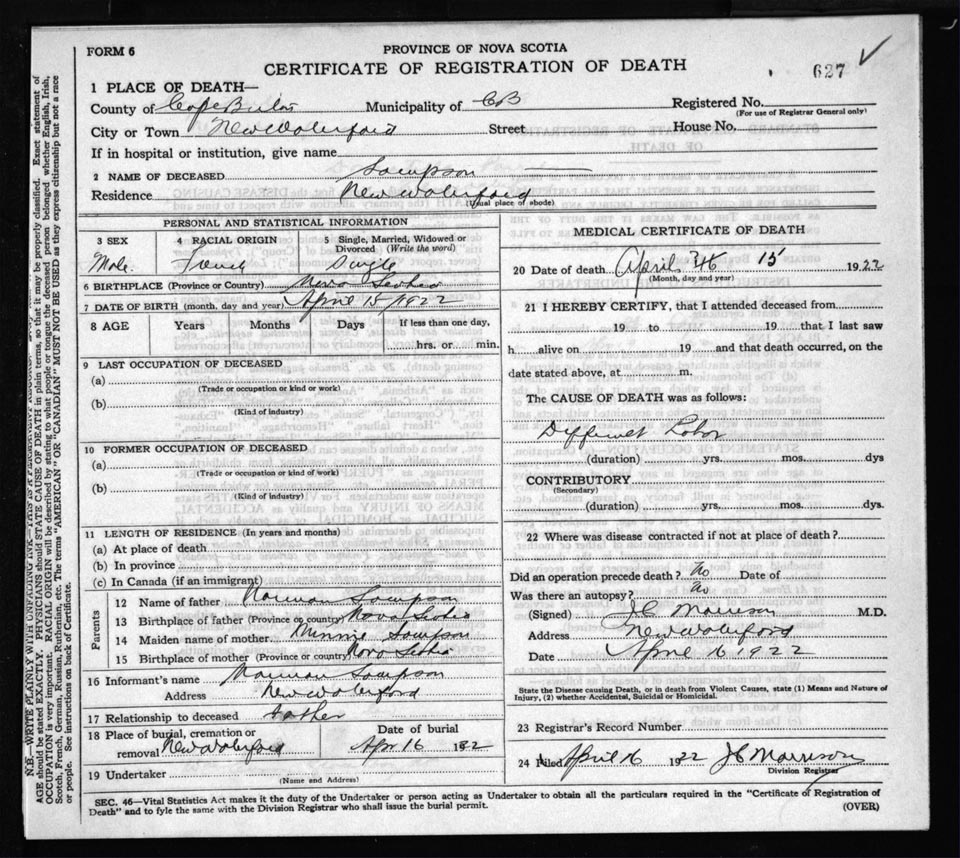 FORM 6
PROVINCE OF NOVA SCOTIA
CERTIFICATE OF REGISTRATION OF DEATH
627
1 PLACE OF DEATH—
County of Cape Breton Municipality of CB Registered No.
(For use of Registrar General only)
City or Town New Waterford Street House No.
If in hospital or institution, give name
2 NAME OF DECEASED Sampson
Residence New Waterford
(Usual place of abode)
PERSONAL AND STATISTICAL INFORMATION
3 SEX 4 RACIAL ORIGIN 5 Single, Married, Widowed or Divorced (Write the word)
Male French Single
6 BIRTHPLACE (Province or Country) Nova Scotia
7 DATE OF BIRTH (month, day and year) April 15/1922
8 AGE Years Months Days If less than one day,
hrs. or min.
9 LAST OCCUPATION OF DECEASED
(a)
(Trade or occupation or kind or work)
(b)
(Kind of industry)
10 FORMER OCCUPATION OF DECEASED
(a)
(Trade or occupation or kind of work)
(b)
(Kind of industry)
11 LENGTH OF RESIDENCE (In years and months)
(a) At place of death
(b) In province
(c) In Canada (if an immigrant)
Parents
12 Name of father Norman Sampson
13 Birthplace of father (Province or country) Nova Scotia
14 Maiden name of mother Minnie Sampson
15 Birthplace of mother (Province or country) Nova Scotia
16 Informant's name Norman Sampson
Address New Waterford
17 Relationship to deceased father
18 Place of burial, cremation or removal New Waterford
Date of burial
Apr 16 1922
19 Undertaker
(Name and Address)
MEDICAL CERTIFICATE OF DEATH
20 Date of death April 15 1922
(Month, day and year)
21 I HEREBY CERTIFY, that I attended deceased from
19 to 19 that I last saw
h alive on 19 and that death occurred, on the
date stated above, at m.
The CAUSE OF DEATH was as follows:
Difficult Labor
(duration) yrs. mos. dys
CONTRIBUTORY
(Secondary)
(duration) yrs. mos. dys.
22 Where was disease contracted if not at place of death?
Did an operation precede death? No Date of
Was there an autopsy? No
(Signed) JC Morrison M.D.
Address New Waterford
Date April 16 1922
State the Disease causing Death, or in death from Violent Causes, state (1) Means and Nature of
Injury, (2) whether Accidental, Suicidal or Homicidal.
23 Registrar's Record Number
24 Filed April 16 1922 JC Morrison
Division Registrar
SEC. 46—Vital Statistics Act makes it the duty of the Undertaker or person acting as Undertaker to obtain all the particulars required in the "Certificate of Registration of
Death" and to fyle the same with the Division Registrar who shall issue the burial permit.
(OVER)
N.B.—WRITE PLAINLY WITH UNFADING INK—THIS IS A PERMANENT RECORD.
AGE should be stated EXACTLY. PHYSICIANS should STATE CAUSE OF DEATH in plain terms, so that it may be properly classified. Exact statement of
OCCUPATION is very important. RACIAL ORIGIN will be described by stating to what people or tongue the deceased person belonged whether English, Irish,
Scotch, French, German, Russian, Ruthenian, etc. The terms "AMERICAN" OR "CANADIAN" MUST NOT BE USED as they express citizenship but not a race
or people. See instructions on back of Certificate.